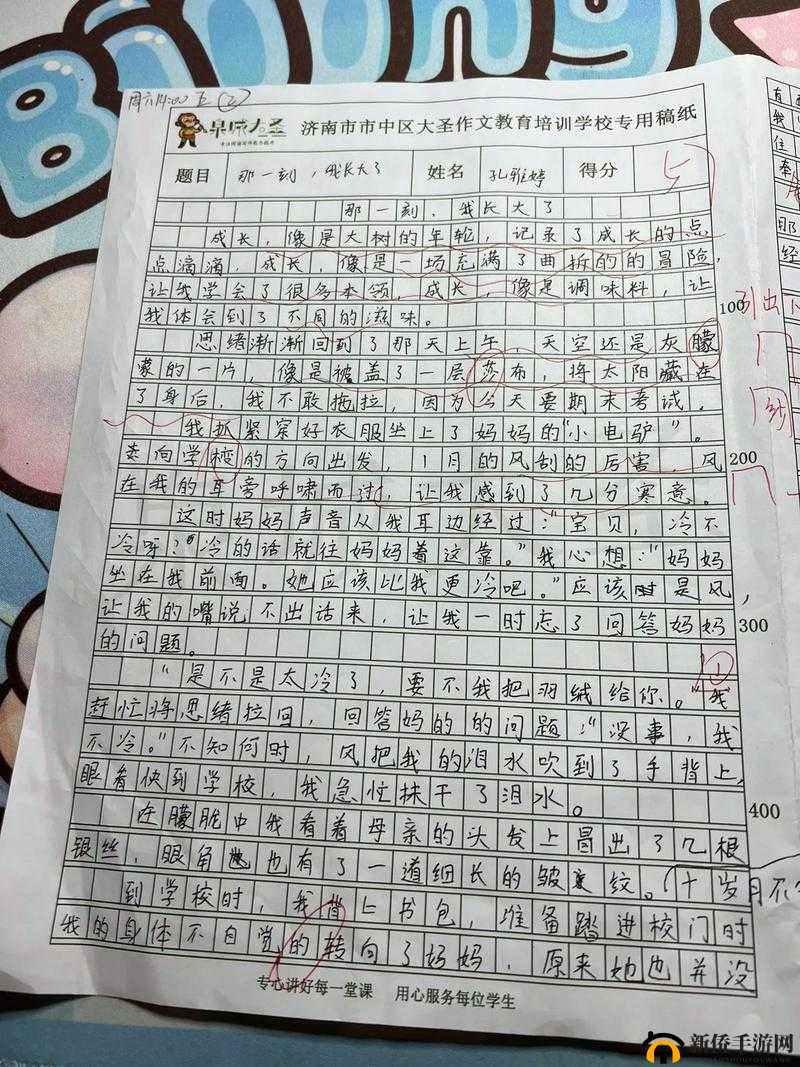 Biling
周六14:00 五(2)
泉城大圣 济南市市中区大圣作文教育培训学校专用稿纸
题目 那一刻,我长大了 姓名 孔雅婷 得分
那一刻,我长大了
成长,像是大树的年轮,记录了成长的点
点滴滴,成长,像是一场充满了曲折的的冒险,
让我学会了很多本领,成长,像是调味料,让
我体会到了不同的滋味。
100
引出
思绪渐渐回到了那天上午,天空还是灰朦
蒙的一片,像是被盖了一层莎布,将太阳藏在
了身后,我不敢拖拉,因为今天要期末考试。
纱
我抓紧穿好衣服坐上了妈妈的“小电驴”。
卖向学校的方向出发,1月的风刮的厉害,风
200
在我的耳旁呼啸而过,让我感到了几分寒意。
这时妈妈声音从我耳边经过:“宝贝,冷不
冷呀?冷的话就往妈妈着这靠。”我心想:“妈妈
坐在我前面。她应该比我更冷吧。”应该时是风,
让我的嘴说不出话来,让我一时忘了问答妈妈
300
的问题。
①
“是不是太冷了,要不我把羽绒给你。”我
赶忙将思绪拉回,回答妈的的问题:“没事,我
不冷。”不知何时,风把我的泪水吹到了手背上,
眼看快到学校,我急忙抹干了泪水。
400
在朦胧中我看着母亲的头发上冒出了几根
银丝,眼角也有了一道细长的皱纹。
十岁月不
到学校时,我背上书包,准备踏进校门时
我的身体不自觉的转向了妈妈,原来她也并没
专心讲好每一堂课 用心服务每位学生
新侨手游网